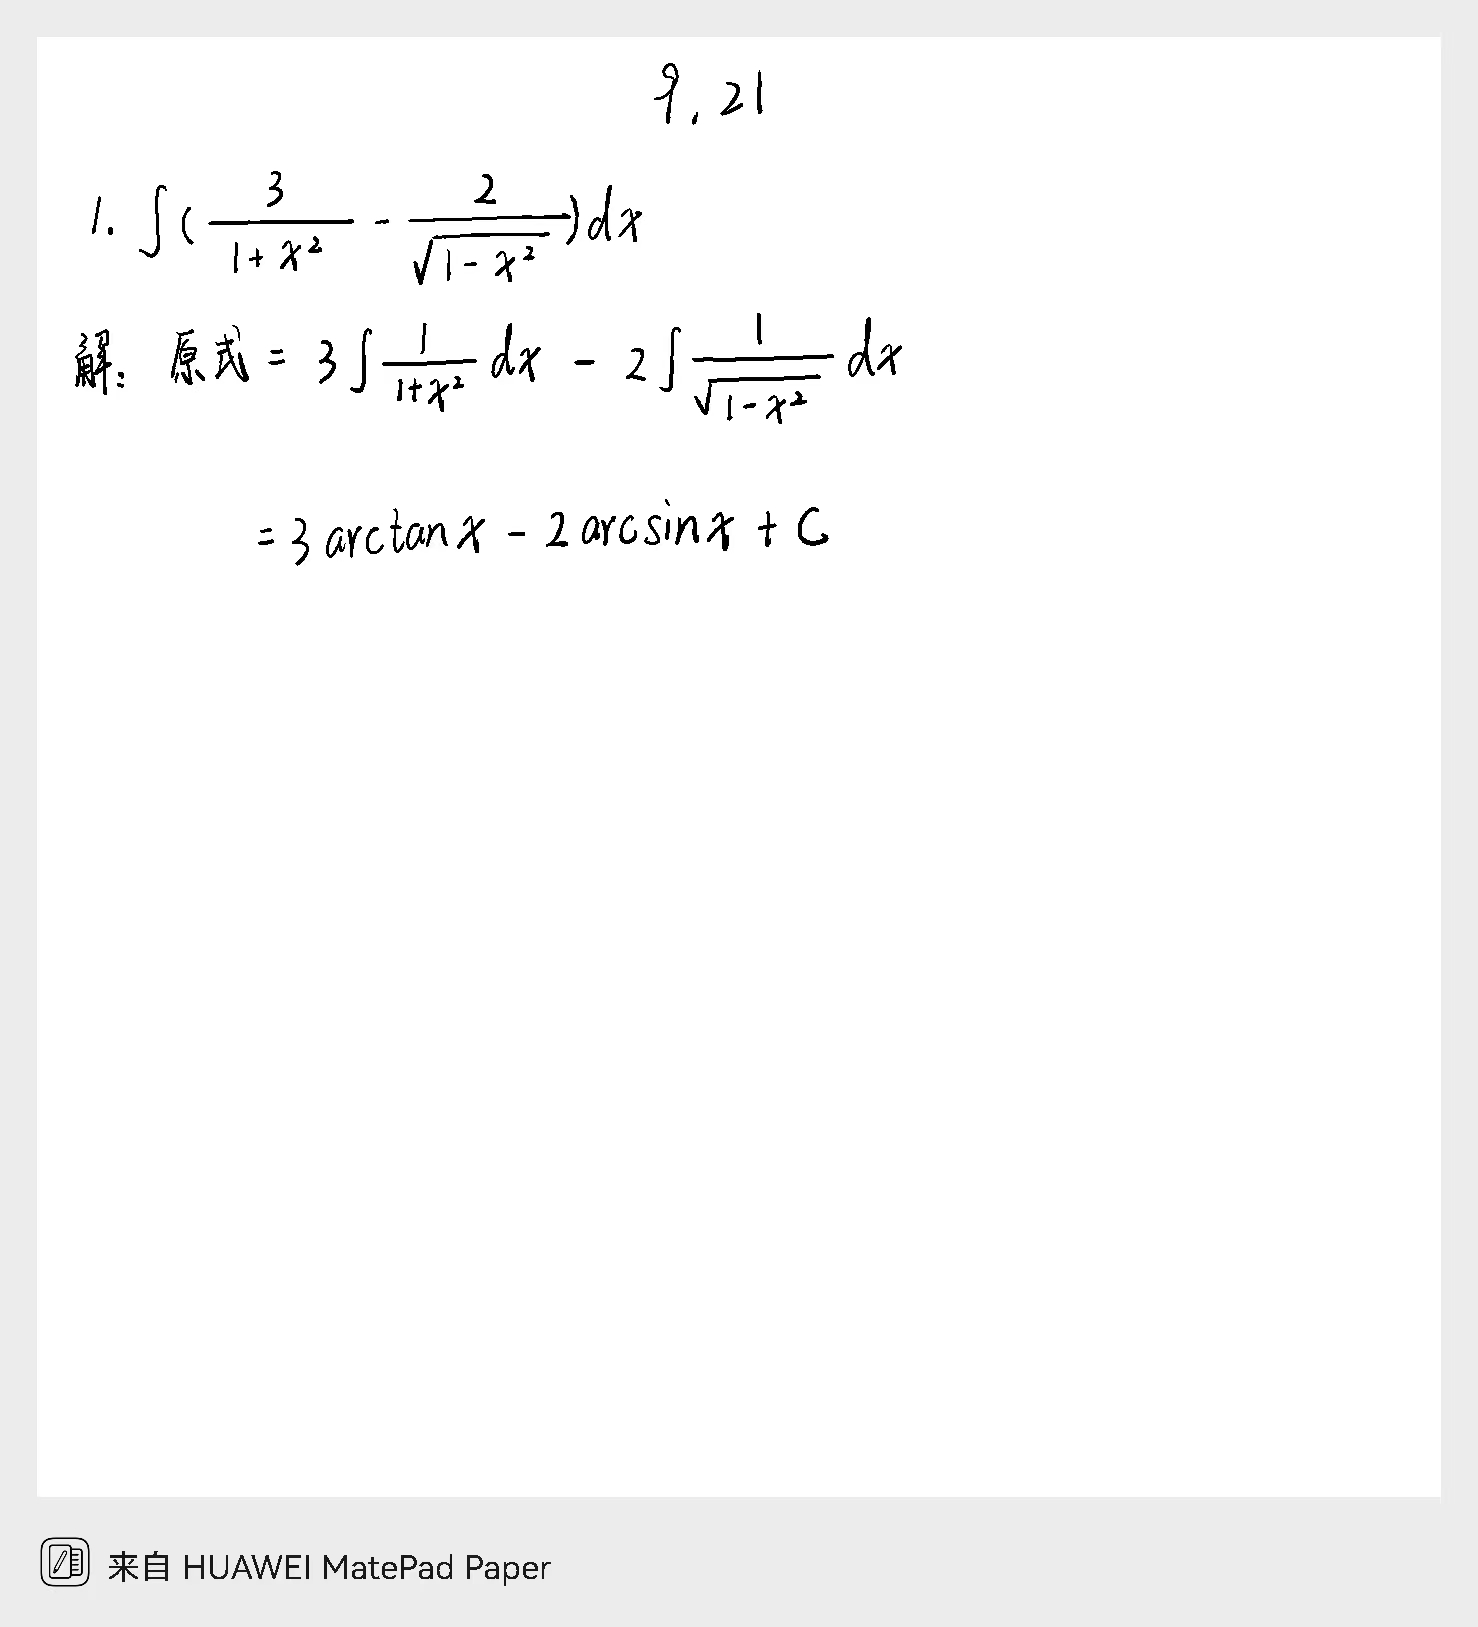 9.21
1. ∫(3/(1+x²) - 2/√(1-x²))dx
解: 原式 = 3∫1/(1+x²) dx - 2∫1/√(1-x²) dx
= 3 arctan x - 2 arcsin x + C
来自 HUAWEI MatePad Paper